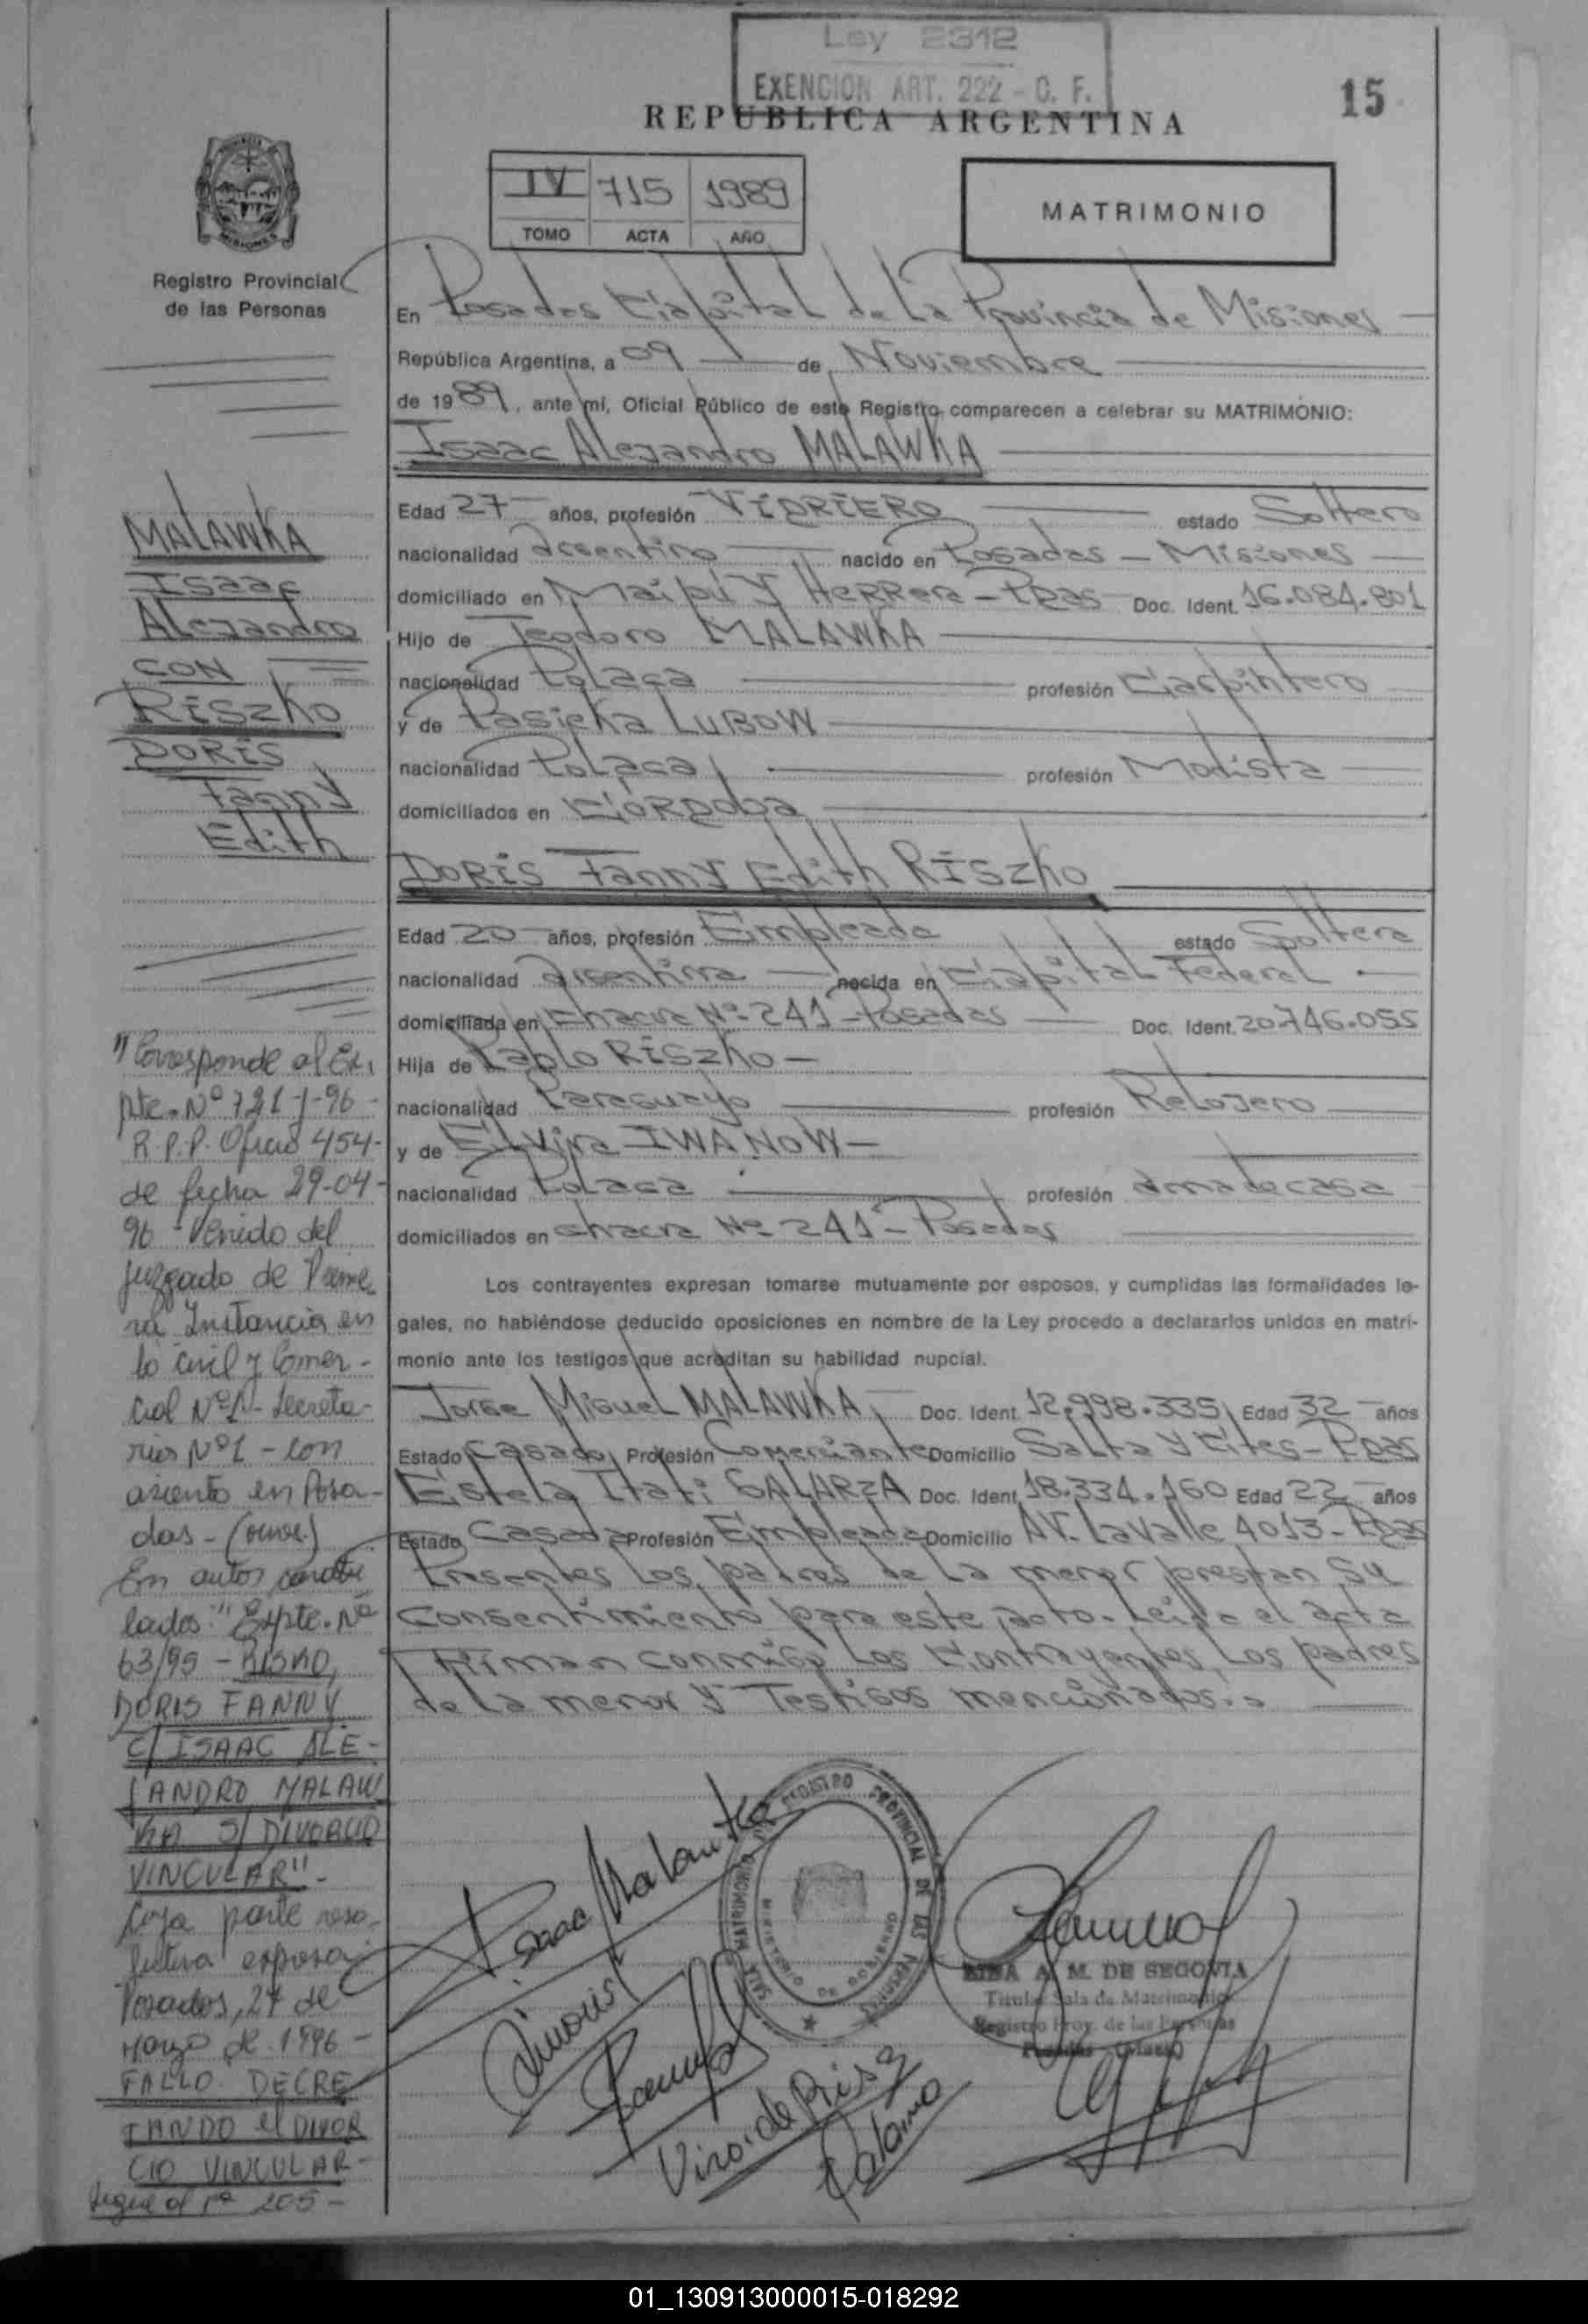 Ley 2312
EXENCION ART. 222 - C. F.
15
REPUBLICA ARGENTINA
IV 715 1989
TOMO ACTA AÑO
MATRIMONIO
MISIONES
Registro Provincial
de las Personas
En Posadas Capital de La Provincia de Misiones
República Argentina, a 09 de Noviembre
de 1989, ante mí, Oficial Público de este Registro comparecen a celebrar su MATRIMONIO:
Isaac Alejandro MALAWKA
Edad 27 años, profesión VIDRIERO estado Soltero
nacionalidad argentino nacido en Posadas - Misiones
domiciliado en Maipú y HERRera - Pdas Doc. Ident. 16.084.801
Hijo de Teodoro MALAWKA
nacionalidad Polaca profesión Carpintero
y de Pasieka LUBOW
nacionalidad Polaca profesión Modista
domiciliados en CÓRDoba
DORIS Fanny Edith RISzko
Edad 20 años, profesión Empleada estado Soltera
nacionalidad argentina nacida en Capital Federal
domiciliada en Chacra Nº 241 - Posadas Doc. Ident. 20.746.055
Hija de Pablo RISzko -
nacionalidad Paraguayo profesión Relojero
y de Elvira IWANOW -
nacionalidad Polaca profesión ama de casa
domiciliados en chacra Nº 241 - Posadas
Los contrayentes expresan tomarse mutuamente por esposos, y cumplidas las formalidades le-
gales, no habiéndose deducido oposiciones en nombre de la Ley procedo a declararlos unidos en matri-
monio ante los testigos que acreditan su habilidad nupcial.
Jorge Miguel MALAWKA Doc. Ident. 12.998.335 Edad 32 años
Estado Casado Profesión Comerciante Domicilio Salta y - Pdas
Estela Itatí GALARZA Doc. Ident. 18.334.160 Edad 22 años
Estado Casada Profesión Empleada Domicilio AV. Lavalle 4013 - Pdas
Presentes Los padres de La menor prestan Su
Consentimiento para este acto. Leída el acta
Firman conmigo Los Contrayentes, Los padres
de La menor y Testigos mencionados..
MALAWKA
Isaac
Alejandro
CON
RISzko
DORIS
Fanny
Edith
"Corresponde al Ex,
pte. Nº 721-J-96-
R.P.P. Oficio 454-
de fecha 29-04-
96 - Venido del
Juzgado de Prime
ra Instancia en
lo Civil y Comer-
cial Nº1 - Secreta-
ria Nº1 - con
asiento en Posa-
das -
En autos caratu
lados: "Expte. Nº
63/95 - RISKO,
DORIS FANNY
C/ ISAAC ALE-
JANDRO MALAW
KA S/ DIVORCIO
VINCULAR" -
Cuya parte reso-
lutiva expresa:
Posadas, 27 de
Marzo de 1996 -
FALLO: DECRE
TANDO el DIVOR
CIO VINCULAR -
Sigue al Fº 205 -
Isaac Malawka
REGISTRO PROVINCIAL DE LAS PERSONAS
SALA MATRIMONIO
MINISTERIO DE GOBIERNO
A. M. DE SEGOVIA
Titular Sala de Matrimonios
Registro Prov. de las Personas
01_130913000015-018292